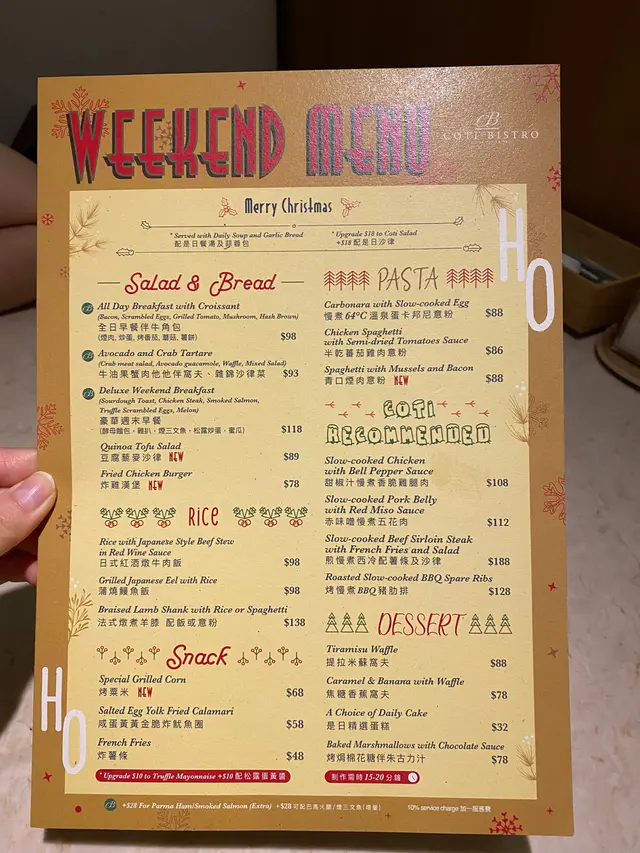 WEEKEND MENU
CB
COTI BISTRO
Merry Christmas
* Served with Daily Soup and Garlic Bread
配是日餐湯及蒜蓉包
* Upgrade $18 to Coti Salad
+$18 配是日沙律
HO
Salad & Bread
All Day Breakfast with Croissant
(Bacon, Scrambled Eggs, Grilled Tomato, Mushroom, Hash Brown)
全日早餐伴牛角包
(煙肉, 炒蛋, 烤番茄, 蘑菇, 薯餅) $98
Avocado and Crab Tartare
(Crab meat salad, Avocado guacamole, Waffle, Mixed Salad)
牛油果蟹肉他他伴窩夫、雜錦沙律菜 $93
Deluxe Weekend Breakfast
(Sourdough Toast, Chicken Steak, Smoked Salmon,
Truffle Scrambled Eggs, Melon)
豪華週末早餐
(酵母麵包，雞扒，煙三文魚，松露炒蛋，蜜瓜) $118
Quinoa Tofu Salad
豆腐藜麥沙律 NEW $89
Fried Chicken Burger
炸雞漢堡 NEW $78
RICE
Rice with Japanese Style Beef Stew
in Red Wine Sauce
日式紅酒燉牛肉飯 $98
Grilled Japanese Eel with Rice
蒲燒鰻魚飯 $98
Braised Lamb Shank with Rice or Spaghetti
法式燉煮羊膝 配飯或意粉 $138
Snack
Special Grilled Corn
烤粟米 NEW $68
Salted Egg Yolk Fried Calamari
咸蛋黃黃金脆炸魷魚圈 $58
French Fries
炸薯條 $48
* Upgrade $10 to Truffle Mayonnaise +$10 配松露蛋黃醬
PASTA
Carbonara with Slow-cooked Egg
慢煮 64°C 溫泉蛋卡邦尼意粉 $88
Chicken Spaghetti
with Semi-dried Tomatoes Sauce
半乾蕃茄雞肉意粉 $86
Spaghetti with Mussels and Bacon
青口煙肉意粉 NEW $88
COTI
RECOMMENDED
Slow-cooked Chicken
with Bell Pepper Sauce
甜椒汁慢煮香脆雞腿肉 $108
Slow-cooked Pork Belly
with Red Miso Sauce
赤味噌慢煮五花肉 $112
Slow-cooked Beef Sirloin Steak
with French Fries and Salad
煎慢煮西冷配薯條及沙律 $188
Roasted Slow-cooked BBQ Spare Ribs
烤慢煮 BBQ 豬肋排 $128
DESSERT
Tiramisu Waffle
提拉米蘇窩夫 $88
Caramel & Banana with Waffle
焦糖香蕉窩夫 $78
A Choice of Daily Cake
是日精選蛋糕 $32
Baked Marshmallows with Chocolate Sauce
烤焗棉花糖伴朱古力汁 $78
制作需時 15-20 分鐘
HO
+$28 For Parma Ham/Smoked Salmon (Extra) +$28 可配巴馬火腿/煙三文魚 (增量)
10% service charge 加一服務費